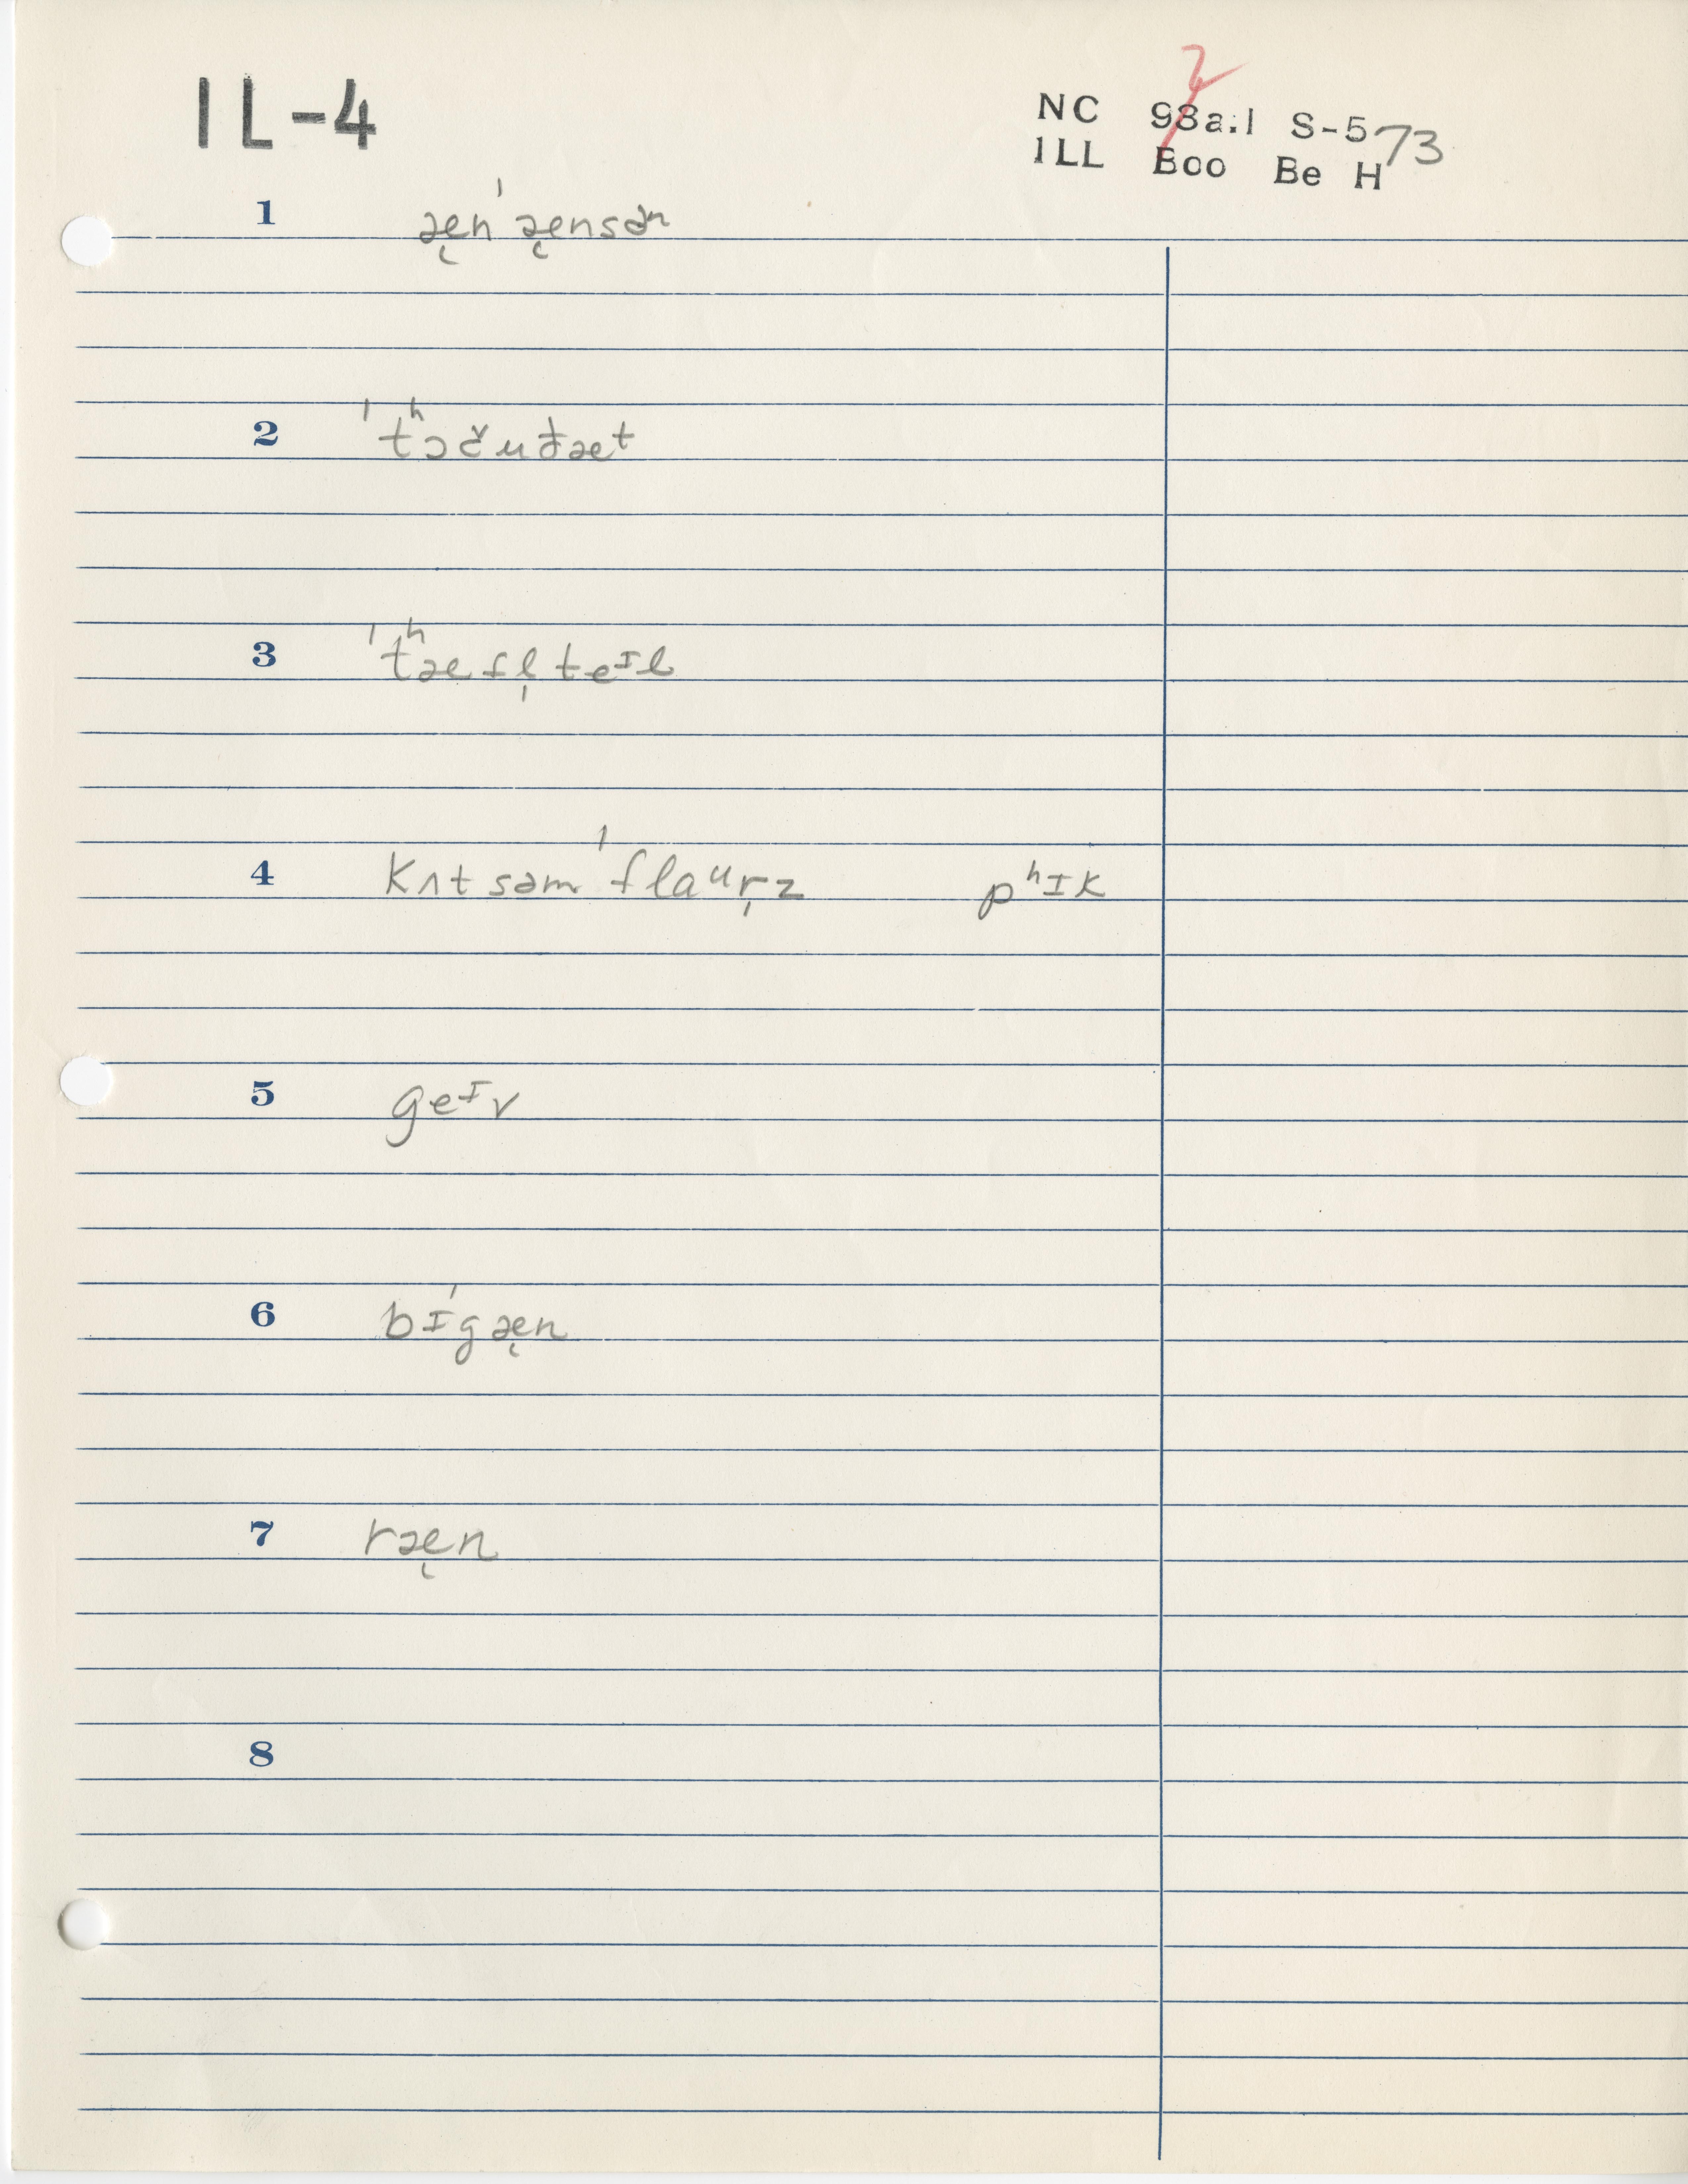 IL-4
2
NC 93a.1 S-573
ILL Boo Be H
1 æ̜n ˈæ̜nsɚ
2 ˈtʰɔčut̬æt
3 ˈtʰæfl̩teᴵl
4 kʌt səm ˈflaᵘr̩z pʰɪk
5 geᴵv
6 bɪˈgæ̜n
7 ræ̜n
8